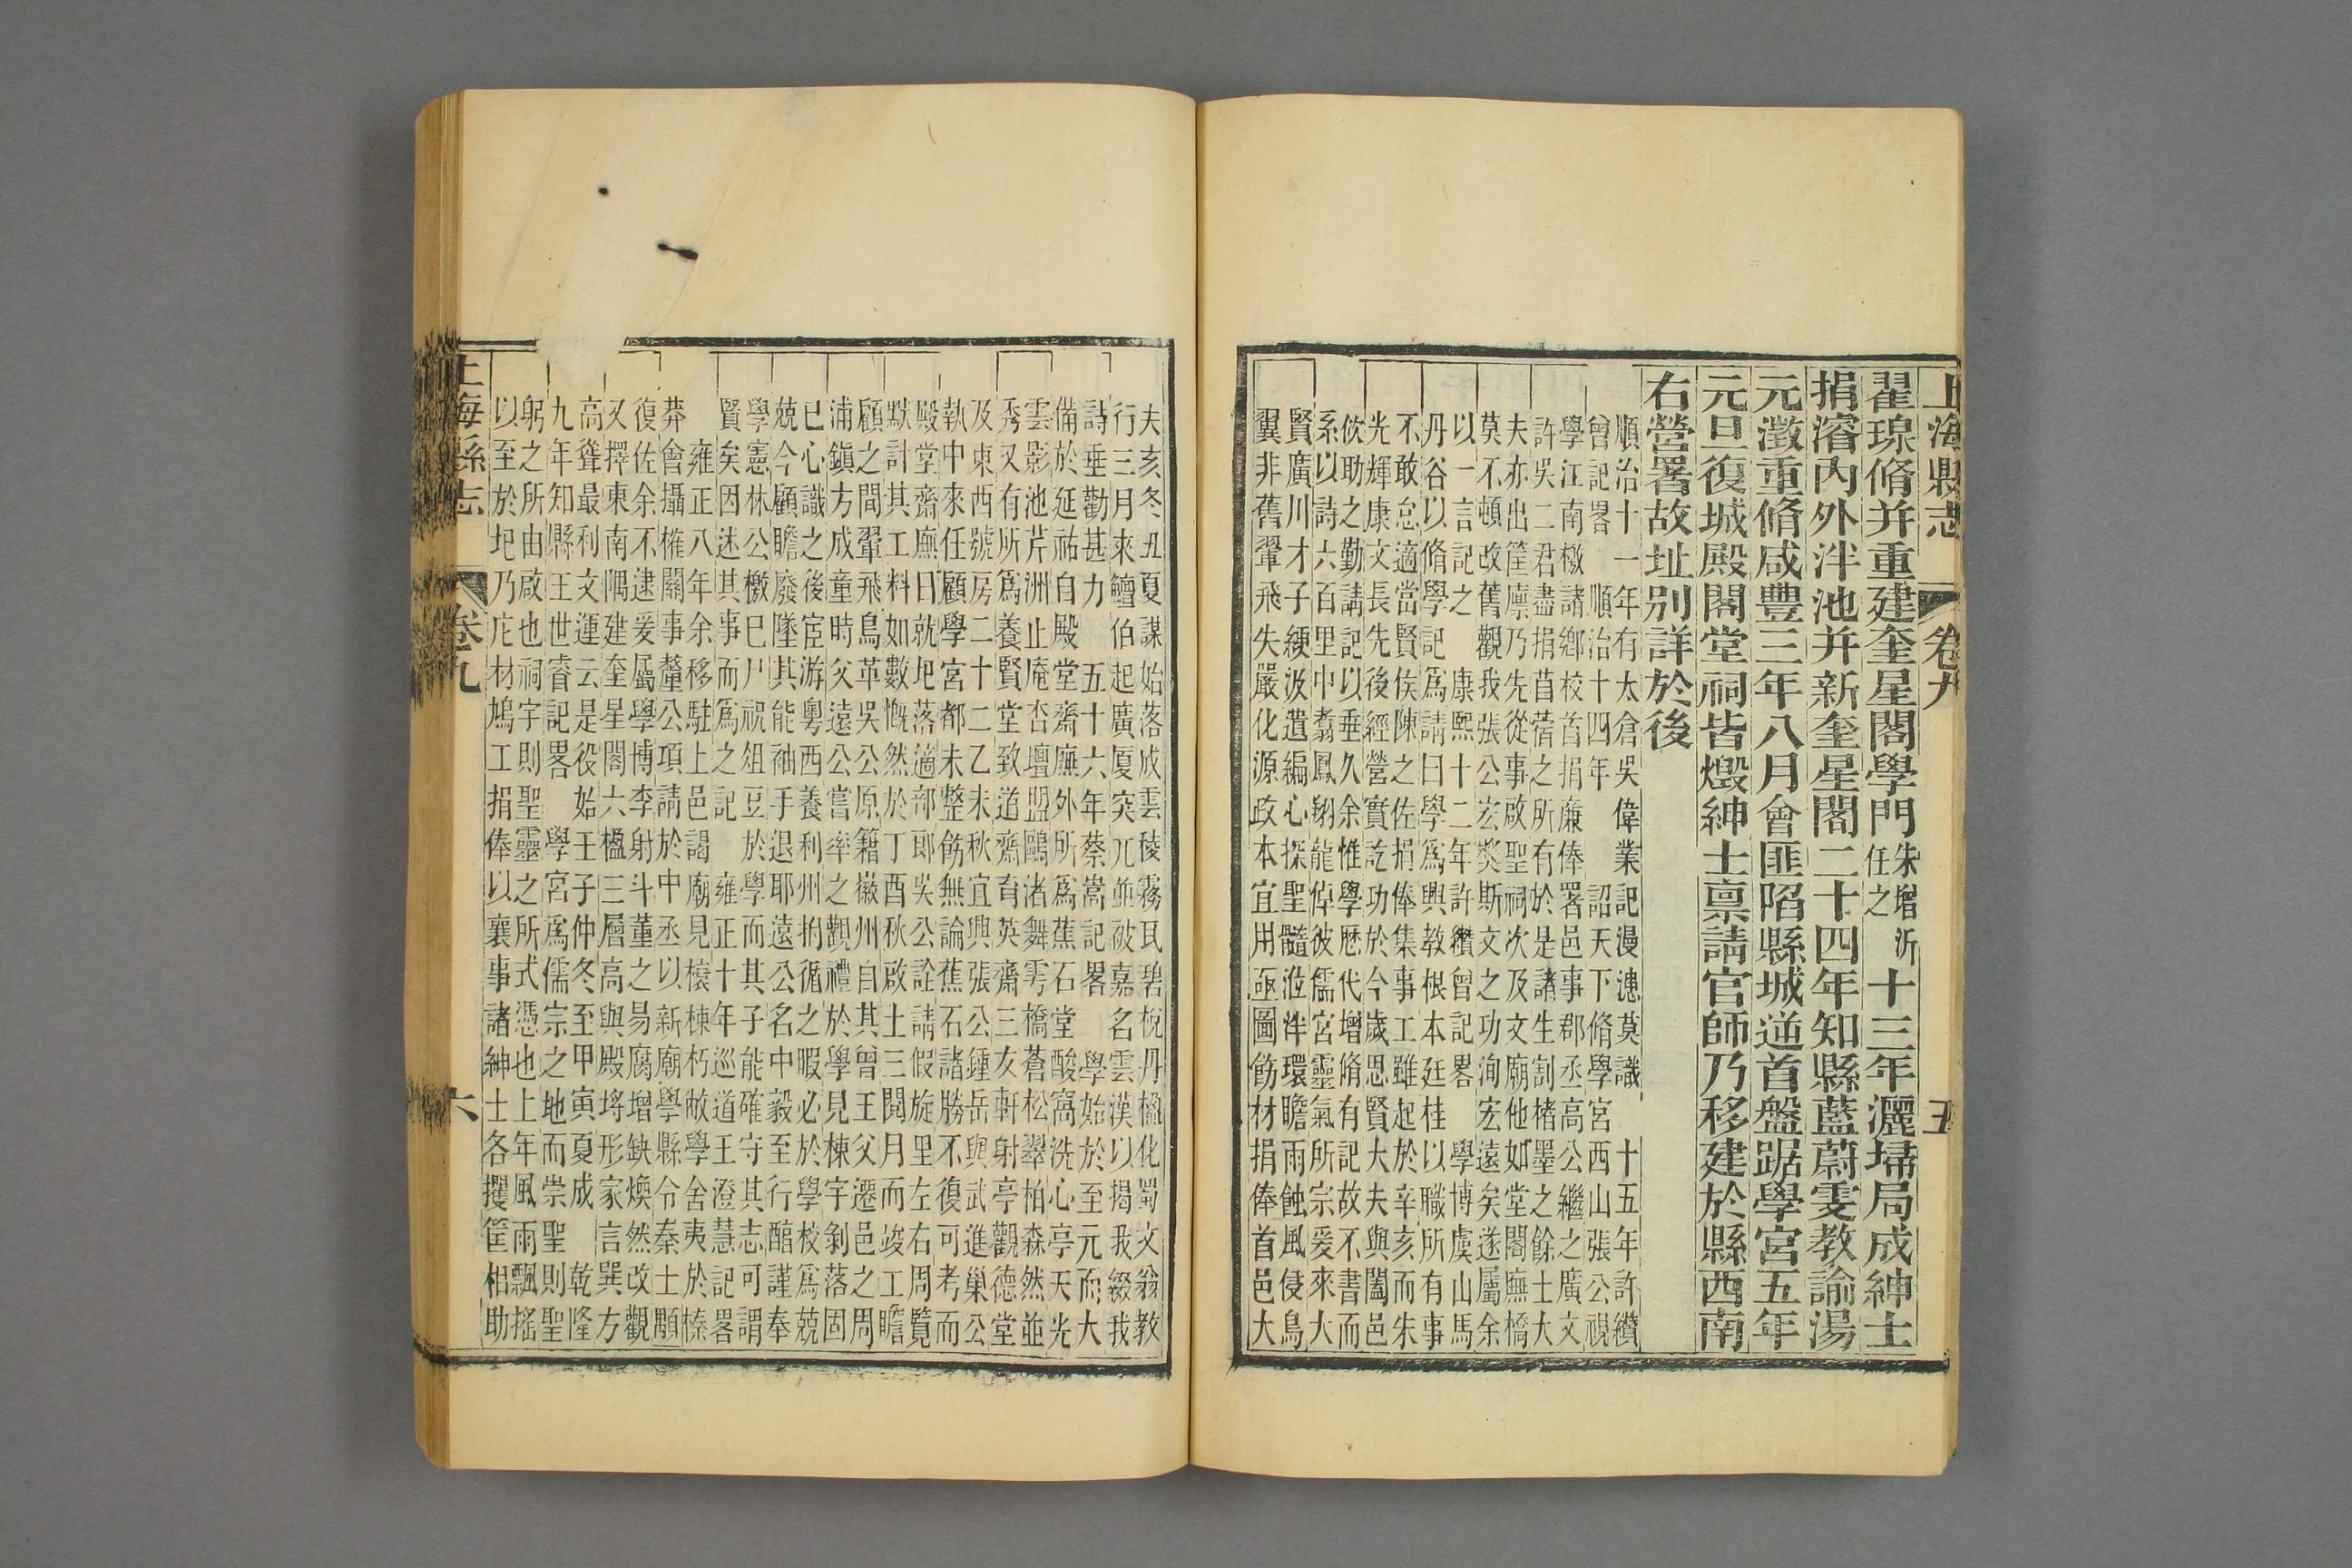 上海縣志
卷九
五
翟瑔脩并重建奎星閣學門朱增沂任之十三年灑埽局成紳士
捐濬內外泮池并新奎星閣二十四年知縣藍蔚雯教諭湯
元瀓重脩咸豐三年八月會匪陷縣城逆首盤踞學宮五年
元旦復城殿閣堂祠皆燬紳士稟請官師乃移建於縣西南
右營署故址別詳於後
順治十一年有太倉吳偉業記漫漶莫識 十五年許纘
曾記畧 順治十四年 詔天下脩學宮西山張公視
學江南檄諸鄉校首捐廉俸署邑事郡丞高公繼之廣文
許吳二君盡捐苜蓿之所有於是諸生割楮墨之餘士大
夫亦出筐廩乃先從事啟聖祠次及文廟他如堂閣廡橋
莫不頓改舊觀我張公宏奬斯文之功洵宏遠矣遂屬余
以一言記之 康熙十二年許纘曾記畧 學博虞山馬
丹谷以脩學記爲請曰學爲興教根本廷桂以職所有事
不敢怠適當賢侯陳之佐捐俸集事工雖起於辛亥而朱
光輝康文長先後經營實訖功於今歲思賢大夫與闔邑
攸助之勤請記以垂久余惟學歷代增脩有記故不書而
系以詩六百里中翥鳳翔龍倬彼儒宮靈氣所宗爰來大
賢廣川才子綆汲遺編心探聖髓涖泮環瞻雨蝕風侵鳥
翼非舊翬飛失嚴化源政本宜用亟圖飭材捐俸首邑大
夫亥冬丑夏謀始落成雲稜霧瓦碧桷丹楹化蜀文翁教
行三月來鱣伯起廣厦突兀並被嘉名雲漢以揭我綴我
詩垂勸甚力 五十六年蔡嵩記畧 學始於至元而大
備於延祐自殿堂齋廡外所爲蕉石堂酸窩洗心亭天光
雲影池芹洲止庵杏壇盟鷗渚舞雩橋蒼松翠柏森然並
秀又有所爲養賢堂致道齋育英齋三友軒射亭觀德堂
及東西號房二十二乙未秋宜興張公鍾岳與武進巢公
執中來任顧學宮都未整飭無論蕉石諸勝不復可考而
殿堂齋廡日就圮落適部郎吳公詮請假旋里左右周覽
默計其工料如數慨然於丁酉秋啟土三閱月而竣工瞻
顧之間翬飛鳥革吳公原籍徽州自其曾王父遷邑之周
浦鎮方成童時父遠公嘗率之觀禮於學見棟宇剝落固
已心識之後宦游粵西養利州拊循之暇必於學校爲兢
兢今顧瞻廢墜其能袖手退耶遠公名中毅至行醕謹奉
學憲林公檄巳尸祝俎豆於學而其子能確守其志可謂
賢矣因述其事而爲之記 雍正十年巡道王澄慧記畧
雍正八年余移駐上邑謁廟見榱棟朽敝學舍夷於榛
莽會攝榷關事釐公項請於中丞以新廟學縣令秦士顒
復佐余不逮爰屬學博李射斗董之易腐增缺煥然改觀
又擇東南隅建奎星閣六楹三層高與殿埒形家言巽方
高聳最利文運云是役始壬子仲冬至甲寅夏成 乾隆
九年知縣王世睿記畧 學宮爲儒宗之地而崇聖則聖
躬之所由啟也祠宇則聖靈之所式憑也上年風雨飄搖
以至於圮乃庀材鳩工捐俸以襄事諸紳士各攫筐相助
上海縣志
卷九
六